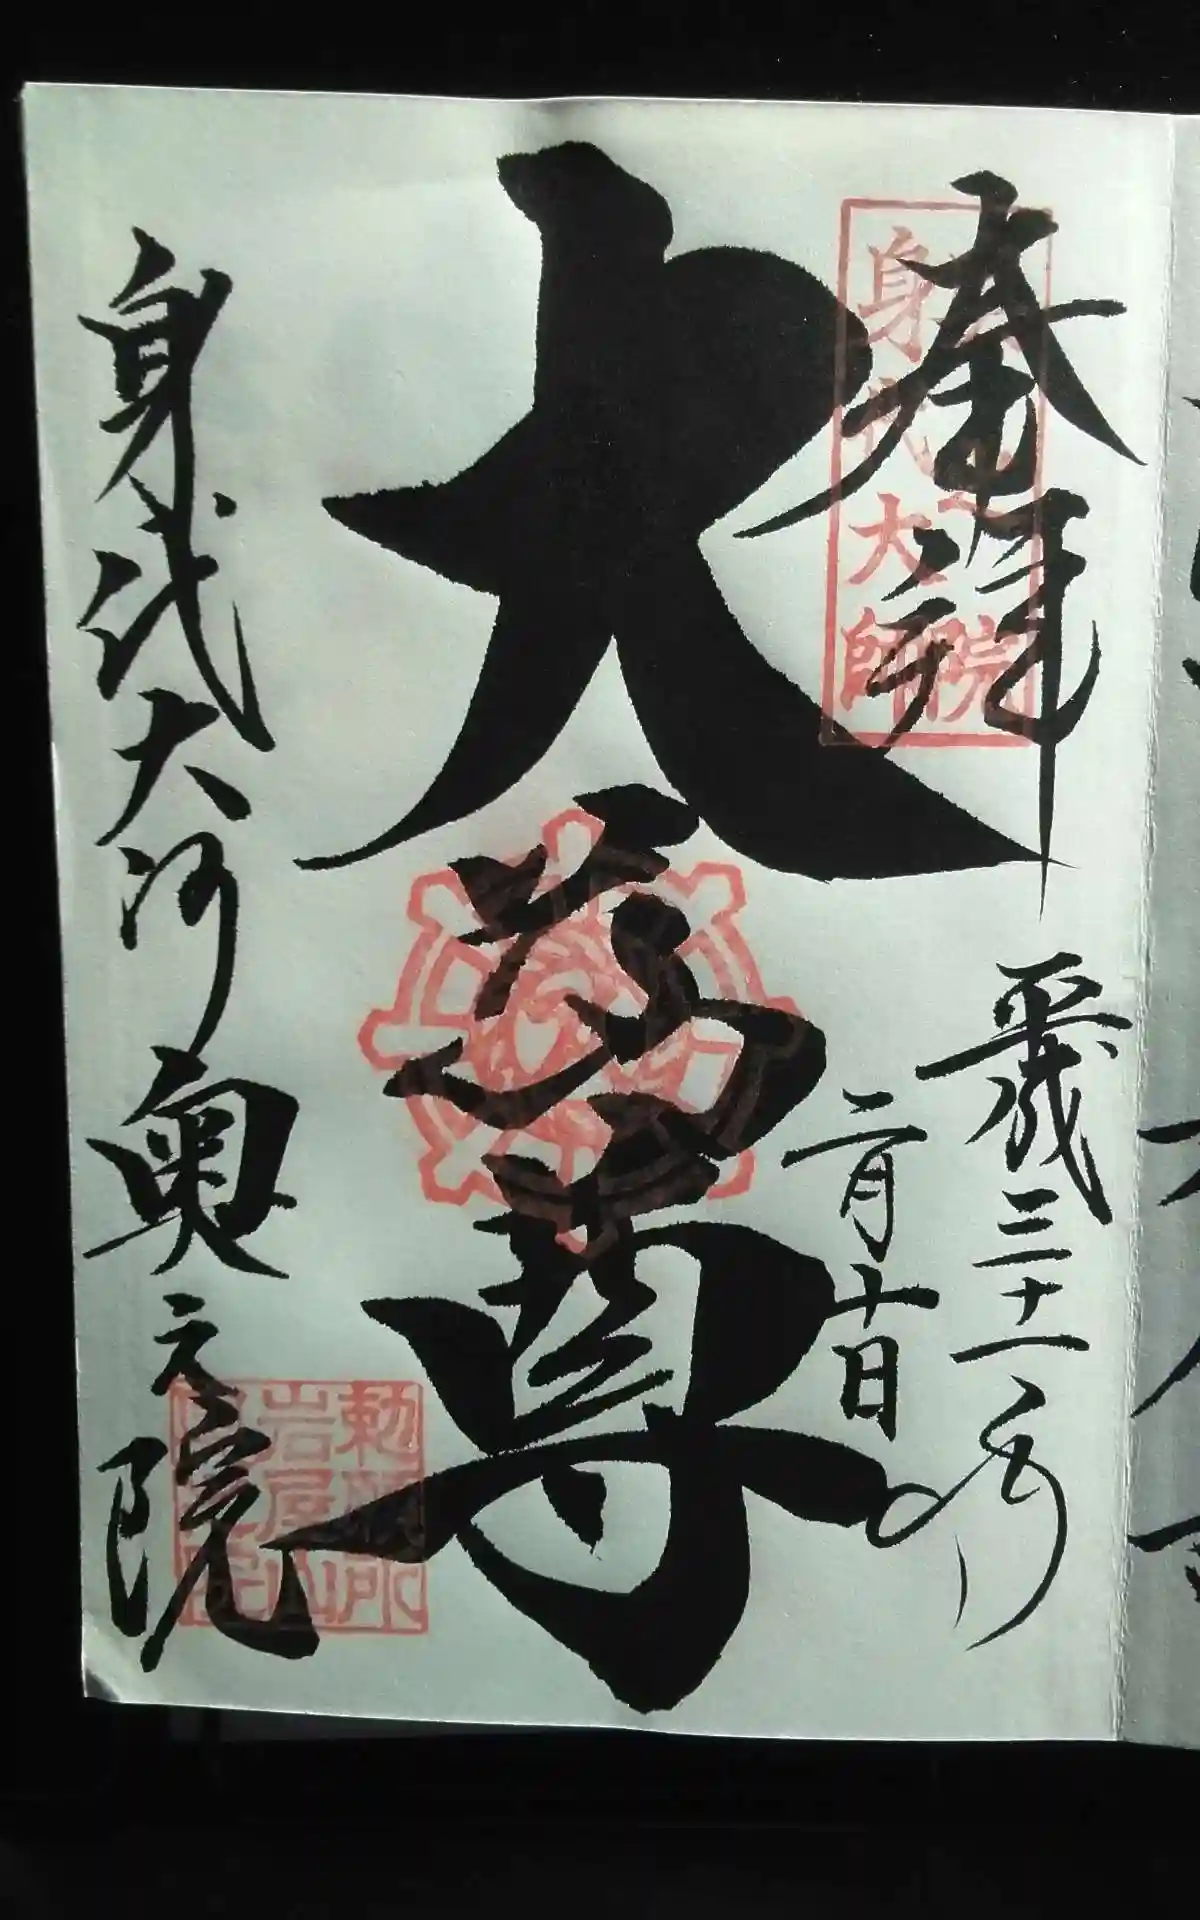 奉拝
平成三十一年
二月十日
大尊
身代大師奥之院
之院
身代大師
勅願所
岩屋山